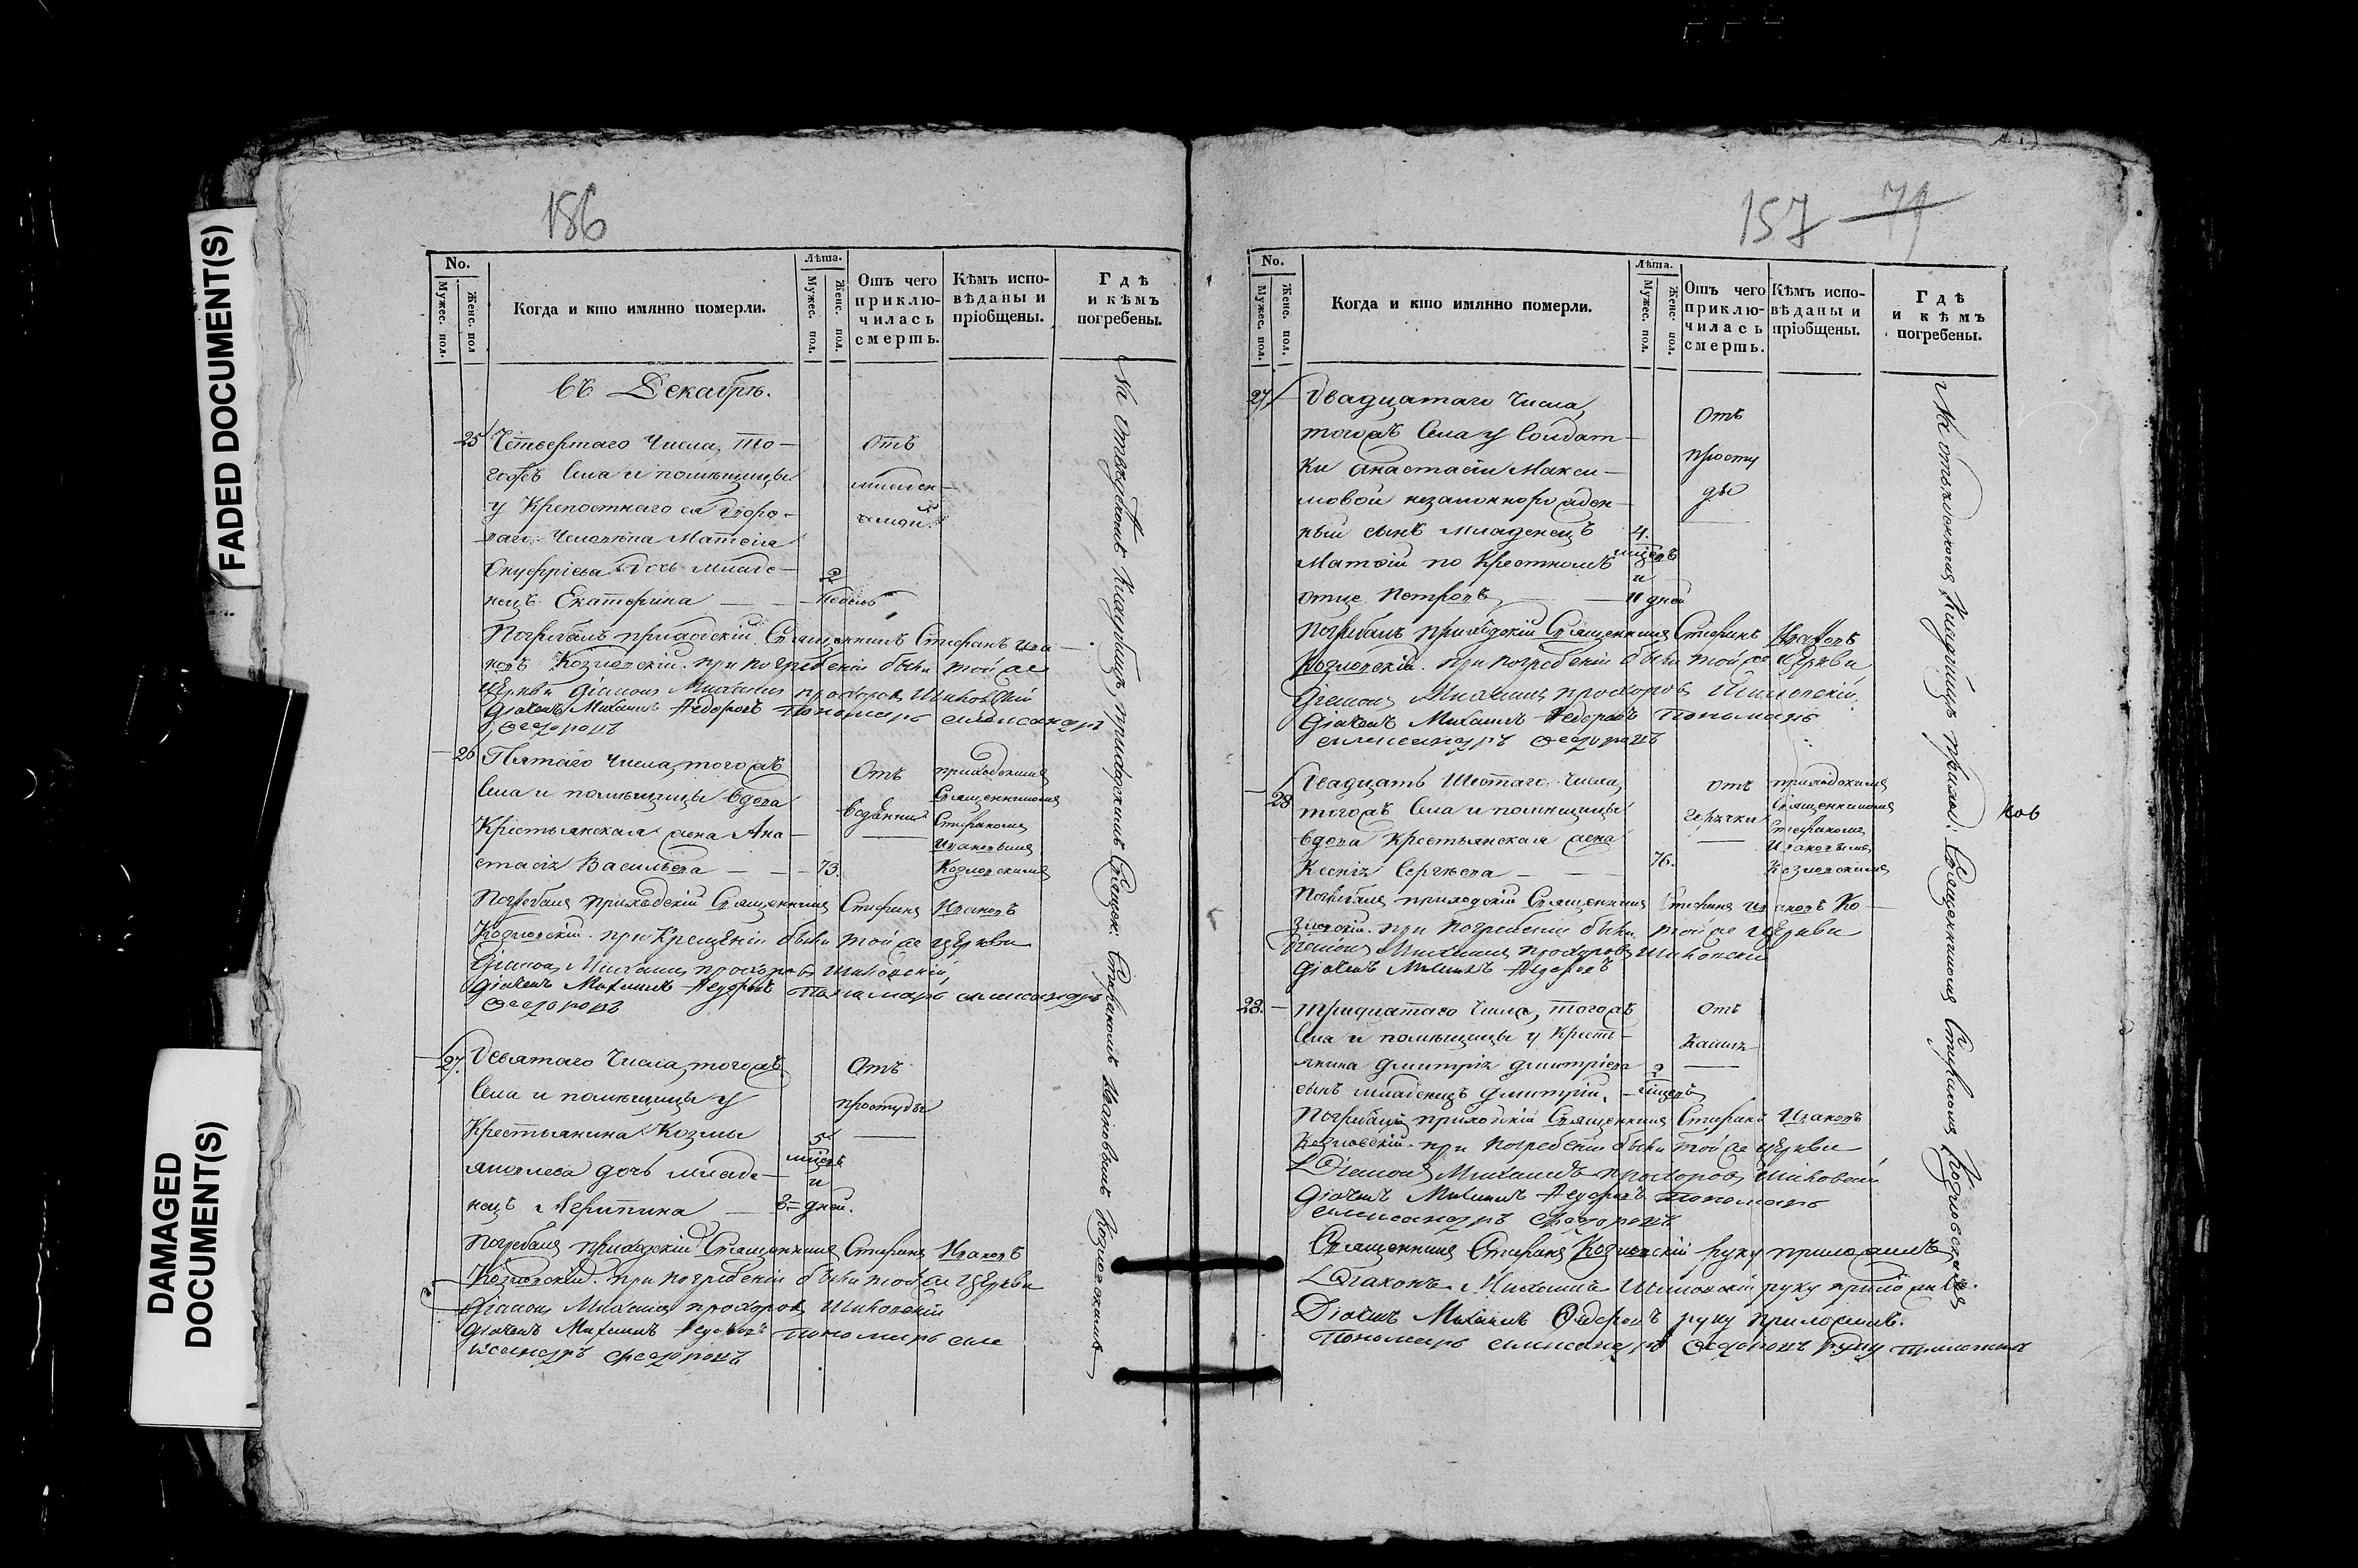 FADED DOCUMENT(S)
DAMAGED
DOCUMENT(S)
156
No.
Мужес. пол.
Женс. пол
Когда и кто имянно померли.
Лѣта.
Мужес. пол.
Женс. пол.
Отъ чего
приклю-
чилась
смерть.
Кѣмъ испо-
вѣданы и
пріобщены.
Гдѣ
и кѣмъ
погребены.
въ Декабрѣ.
25
Четвертаго Числа, то-
гожъ Села и помѣщицы
у Крепостнаго ея дворо-
ваго Человѣка Матвѣя
Онуфріева дочь младе-
нецъ Екатерина
2
недель
Отъ
Погребалъ приходскій Священникъ Стефанъ Ива-
новъ Козловскій. при погребеніи были той же
Церкви Діаконъ Михаилъ Прохоровъ
Дьячекъ Михаилъ Федоровъ Пономарь Александръ
Федоровъ
26
Пятаго Числа, тогожъ
Села и помѣщицы вдова
Крестьянская жена Ана-
стасія Васильева
73.
Отъ
приходскимъ
Священникомъ
Стефаномъ
Ивановымъ
Козловскимъ
Погребалъ приходскій Священникъ Стефанъ Ивановъ
Козловскій. при Крещеніи были той же Церкви
Діаконъ Михаилъ Прохоровъ
Дьячекъ Михаилъ Федоровъ Пономарь Александръ
Федоровъ
27.
Девятаго Числа, тогожъ
Села и помѣщицы у
Крестьянина Козмы
Яковлева дочь младе-
нецъ
5
и
3 = дней.
Отъ
простуды
Погребалъ приходскій Священникъ Стефанъ Ивановъ
Козловскій. при погребеніи были той же Церкви
Діаконъ Михаилъ Прохоровъ
Дьячекъ Михаилъ Федоровъ Пономарь Але
ксандръ Федоровъ
Священ: Стефаномъ Ивановымъ Козловскимъ
157 71
No.
Мужес. пол.
Женс. пол.
Когда и кто имянно померли.
Лѣта.
Мужес. пол.
Женс. пол.
Отъ чего
приклю-
чилась
смерть.
Кѣмъ испо-
вѣданы и
пріобщены.
Гдѣ
и кѣмъ
погребены.
27
Двадцатаго Числа,
тогожъ Села у Солдат-
ки Анастасіи Макси-
мовой незаконнорожден-
ный сынъ младенецъ
Матвій по Крестномъ
отце Петровъ
4.
и
11 дней
Отъ
просту
ды
Погребалъ приходскій Священникъ Стефанъ Ивановъ
Козловскій. при погребеніи были той же Церкви
Діаконъ Михаилъ Прохоровъ
Дьячекъ Михаилъ Федоровъ Пономарь
Александръ Федоровъ
28
Двадцать Шестаго Числа,
тогожъ Села и помѣщицы
вдова Крестьянская жена
Ксенія Сергѣева
76.
отъ
горячки
приходскимъ
Священникомъ
Стефаномъ
Ивановымъ
Козловскимъ
Погребалъ приходскій Священникъ Стефанъ Ивановъ Ко-
зловскій. при Погребеніи были той же Церкви
Діаконъ Михаилъ Прохоровъ
Дьячекъ Михаилъ Федоровъ
28.
Тридцатаго Числа, тогожъ
Села и помѣщицы у Крестъ-
янина Дмитрія Дмитріева
сынъ младенецъ Дмитрій.
2
Отъ
Кашля
Погребалъ приходскій Священникъ Стефанъ Ивановъ
Козловскій. при Погребеніи были той же Церкви
Діаконъ Михаилъ Прохоровъ
Дьячекъ Михаилъ Федоровъ Пономарь
Александръ Федоровъ
Священникъ Стефанъ Козловскій руку приложилъ
Діаконъ Михаилъ руку приложилъ.
Дьячекъ Михаилъ Федоровъ руку приложилъ.
Пономарь Александръ Федоровъ руку приложилъ
Священникомъ Стефаномъ Козловскимъ
ков